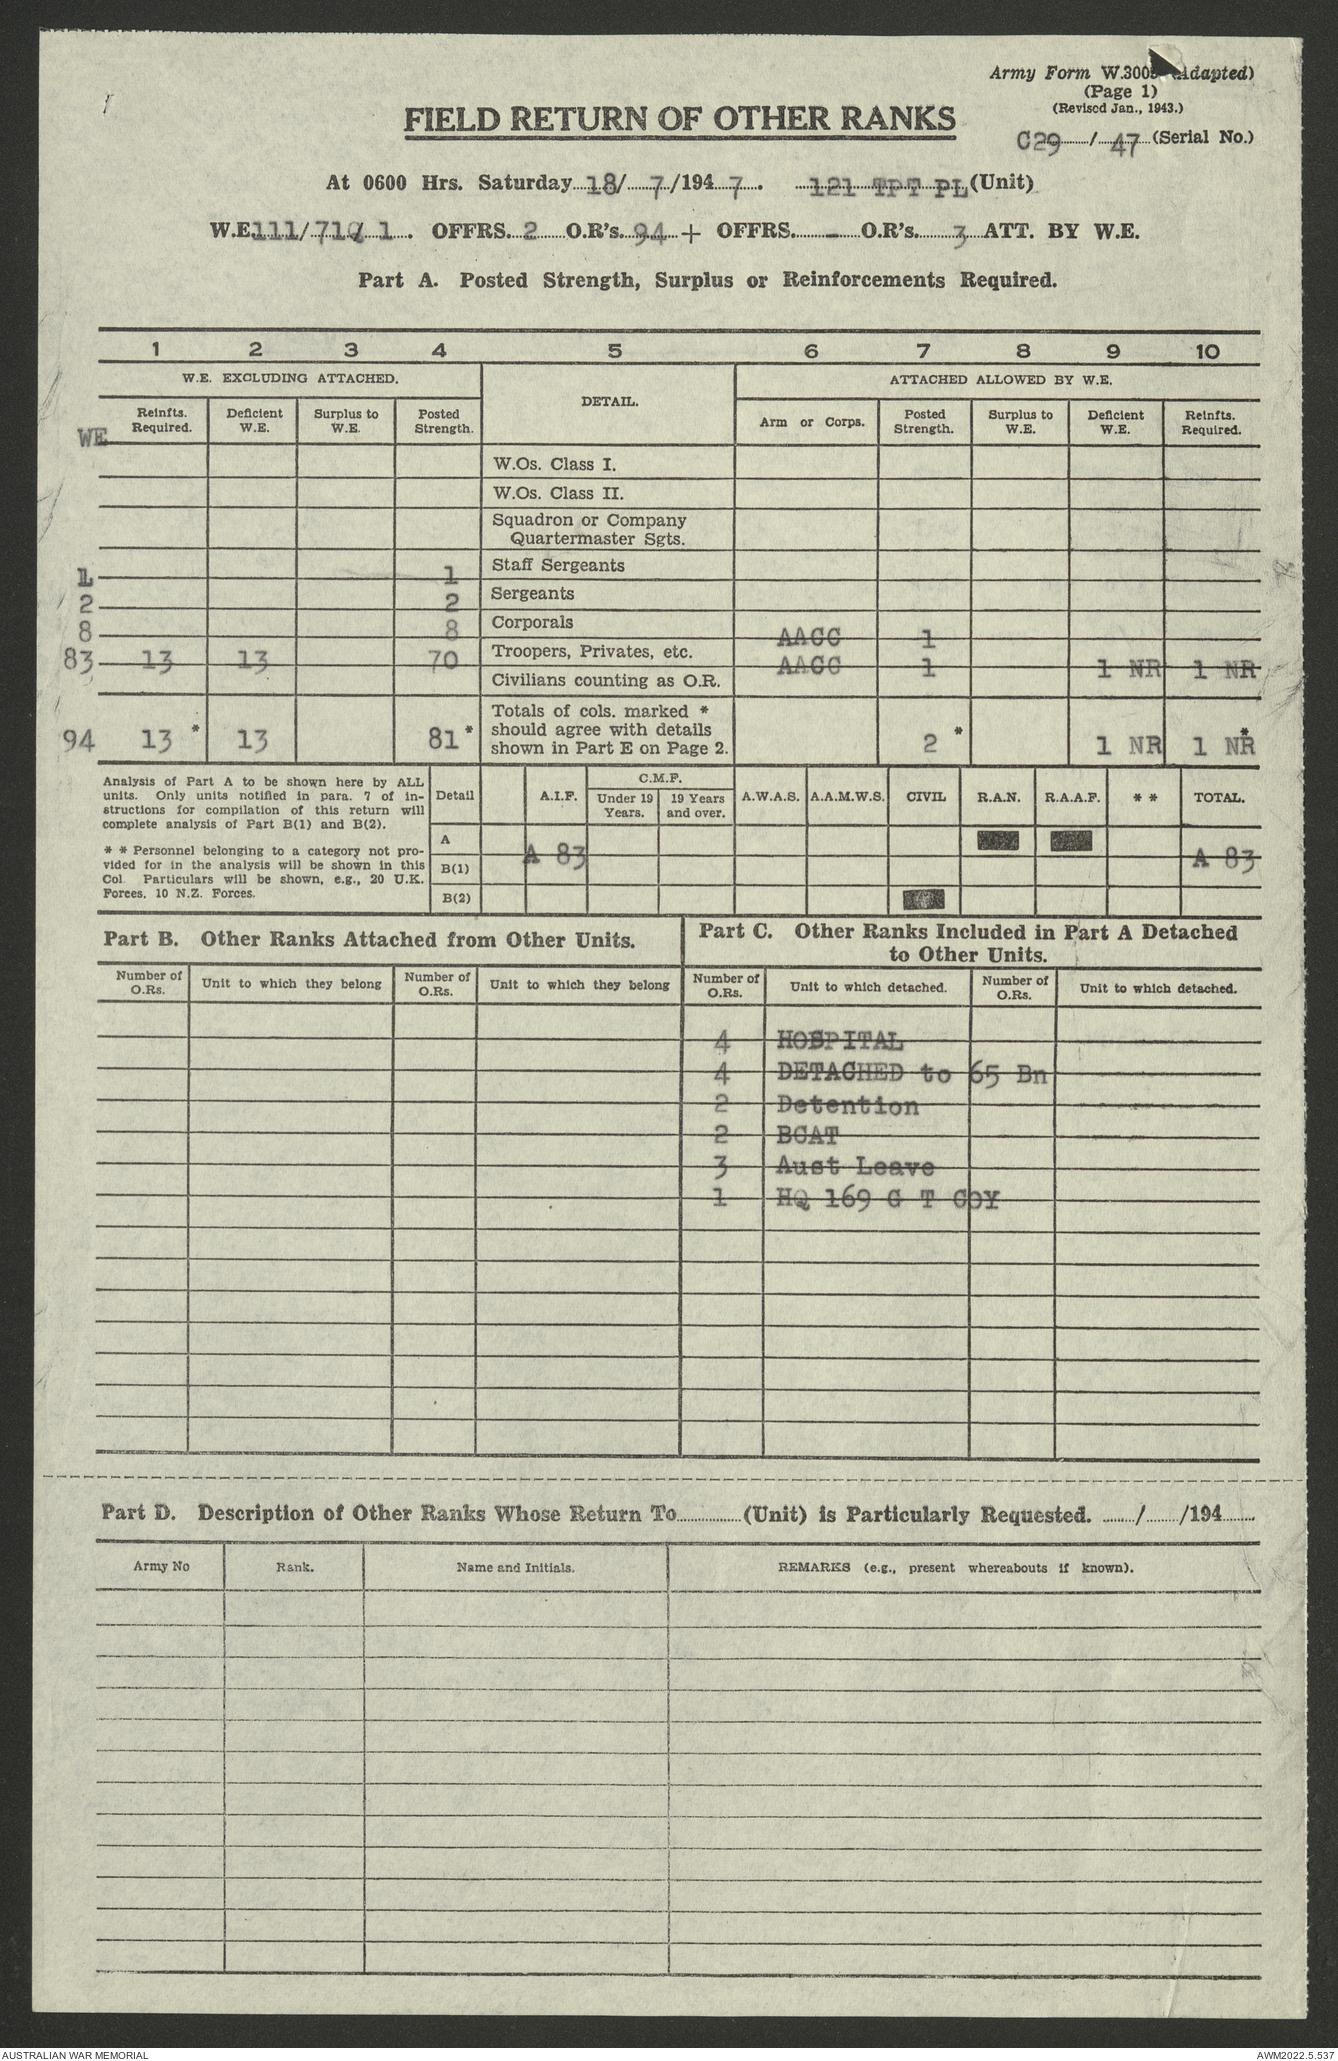 Army Form W.3009 (Adapted)
(Page 1)
(Revised Jan., 1943.)
FIELD RETURN OF OTHER RANKS
C29/47 (Serial No.)
At 0600 Hrs. Saturday 18/7/1947. 121 TPT PL (Unit)
W.E. 111/710/1. OFFRS. 2 O.R's. 94 + OFFRS. - O.R's. 3 ATT. BY W.E.
Part A. Posted Strength, Surplus or Reinforcements Required.
1 2 3 4 5 6 7 8 9 10
W.E. EXCLUDING ATTACHED. DETAIL. ATTACHED ALLOWED BY W.E.
Reinfts. Required. Deficient W.E. Surplus to W.E. Posted Strength. Arm or Corps. Posted Strength. Surplus to W.E. Deficient W.E. Reinfts. Required.
WE
W.Os. Class I.
W.Os. Class II.
Squadron or Company
Quartermaster Sgts.
1 1 Staff Sergeants
2 2 Sergeants
8 8 Corporals AACC 1
83 13 13 70 Troopers, Privates, etc. AACC 1 1 NR 1 NR
Civilians counting as O.R.
Totals of cols. marked *
should agree with details
shown in Part E on Page 2.
94 13 * 13 81 * 2 * 1 NR 1 NR *
Analysis of Part A to be shown here by ALL
units. Only units notified in para. 7 of in-
structions for compilation of this return will
complete analysis of Part B(1) and B(2).
* * Personnel belonging to a category not pro-
vided for in the analysis will be shown in this
Col. Particulars will be shown, e.g., 20 U.K.
Forces, 10 N.Z. Forces.
Detail A.I.F. C.M.F. Under 19 Years. 19 Years and over. A.W.A.S. A.A.M.W.S. CIVIL R.A.N. R.A.A.F. * * TOTAL.
A
A 83 A 83
B(1)
B(2)
Part B. Other Ranks Attached from Other Units.
Number of O.Rs. Unit to which they belong Number of O.Rs. Unit to which they belong
Part C. Other Ranks Included in Part A Detached
to Other Units.
Number of O.Rs. Unit to which detached. Number of O.Rs. Unit to which detached.
4 HOSPITAL
4 DETACHED to 65 Bn
2 Detention
2 BCAT
3 Aust Leave
1 HQ 169 G T COY
Part D. Description of Other Ranks Whose Return To (Unit) is Particularly Requested. / /194
Army No Rank. Name and Initials. REMARKS (e.g., present whereabouts if known).
AUSTRALIAN WAR MEMORIAL
AWM2022.5.537